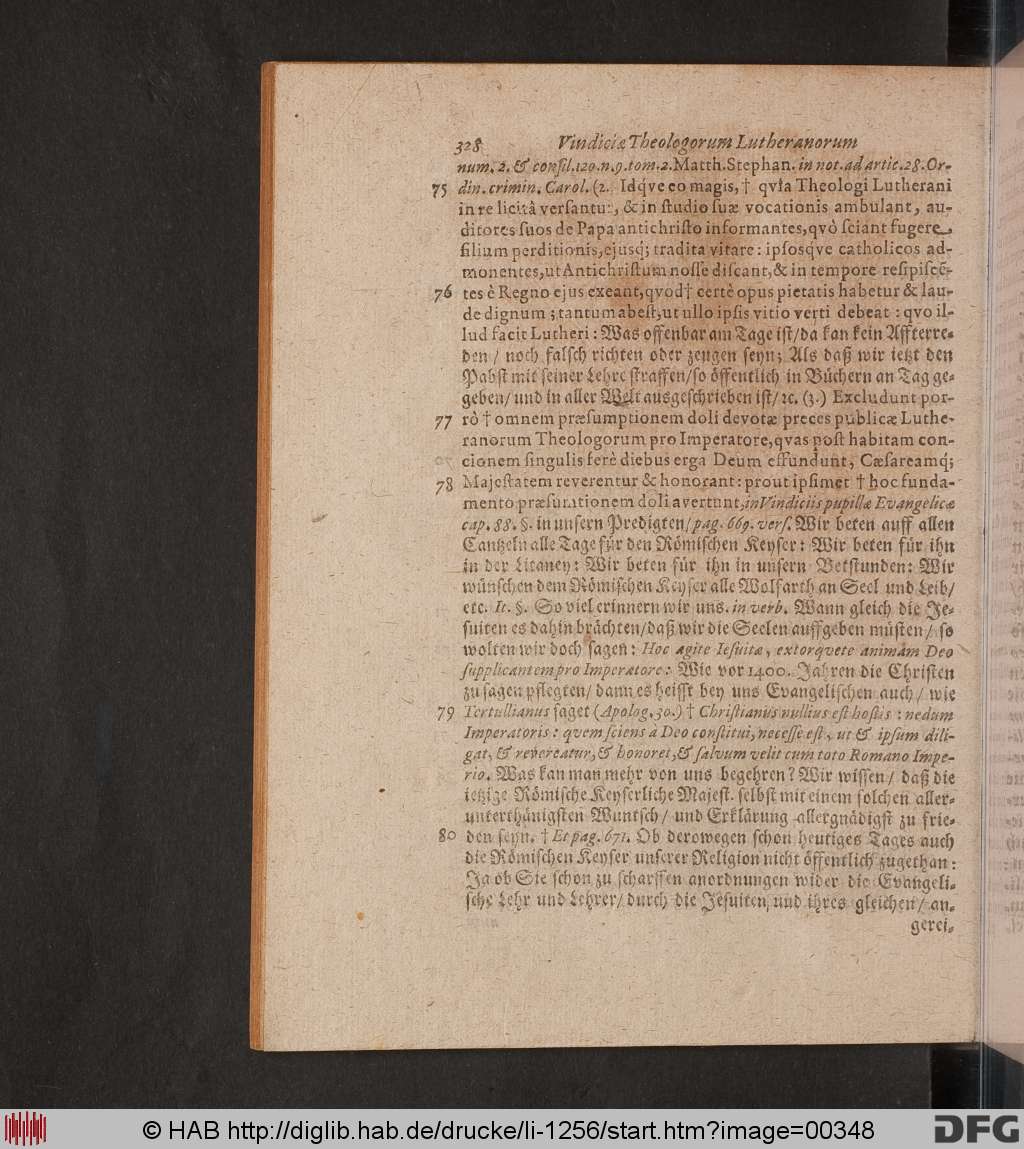 328 Vindiciæ Theologorum Lutheranorum
num. 2. & consil. 120. n. 9. tom. 2. Matth. Stephan. in not. ad artic. 28. Or-
75 din. crimin. Carol. (2. Idqve eo magis, † qvia Theologi Lutherani
in re licitâ versantur, & in studio suæ vocationis ambulant, au-
ditores suos de Papa antichristo informantes, qvò sciant fugere
filium perditionis, ejusq; tradita vitare: ipsosqve catholicos ad-
monentes, ut Antichristum nosse discant, & in tempore resipiscē-
76 tes è Regno ejus exeant, qvod † certè opus pietatis habetur & lau-
de dignum; tantum abest, ut ullo ipsis vitio verti debeat: qvo il-
lud facit Lutheri: Was offenbar am Tage ist/ da kan kein Affterre-
den/ noch falsch richten oder zeugen seyn; Als daß wir ietzt den
Pabst mit seiner Lehre straffen/ so öffentlich in Büchern an Tag ge-
geben/ und in aller Welt ausgeschrieben ist/ ꝛc. (3.) Excludunt por-
77 rò † omnem præsumptionem doli devotæ preces publicæ Luthe-
ranorum Theologorum pro Imperatore, qvas post habitam con-
cionem singulis ferè diebus erga Deum effundunt, Cæsareamq;
78 Majestatem reverentur & honorant: prout ipsimet † hoc funda-
mento præsumtionem doli avertunt, in Vindiciis pupillæ Evangelicæ
cap. 88. §. in unsern Predigten/ pag. 669. vers. Wir beten auff allen
Cantzeln alle Tage für den Römischen Keyser: Wir beten für ihn
in der Litaney: Wir beten für ihn in unsern Betstunden: Wir
wünschen dem Römischen Keyser alle Wolfarth an Seel und Leib/
etc. It. §. So viel erinnern wir uns. in verb. Wann gleich die Je-
suiten es dahin brächten/ daß wir die Seelen auffgeben müsten/ so
wolten wir doch sagen: Hoc agite Iesuitæ, extorqvete animam Deo
supplicantem pro Imperatore: Wie vor 1400. Jahren die Christen
zu sagen pflegten/ dann es heisst bey uns Evangelischen auch/ wie
79 Tertullianus saget (Apolog. 30.) † Christianus nullius est hostis: nedum
Imperatoris: qvem sciens à Deo constitui, necesse est, ut & ipsum dili-
gat, & revereatur, & honoret, & salvum velit cum toto Romano Impe-
rio. Was kan man mehr von uns begehren? Wir wissen/ daß die
ietzige Römische Keyserliche Majest. selbst mit einem solchen aller-
unterthänigsten Wuntsch/ und Erklärung allergnädigst zu frie-
80 den seyn. † Et pag. 671. Ob derowegen schon heutiges Tages auch
die Römischen Keyser unserer Religion nicht öffentlich zugethan:
Ja ob Sie schon zu scharffen anordnungen wider die Evangeli-
sche Lehr und Lehrer/ durch die Jesuiten und ihres gleichen/ an-
gerei-
© HAB http://diglib.hab.de/drucke/li-1256/start.htm?image=00348
DFG